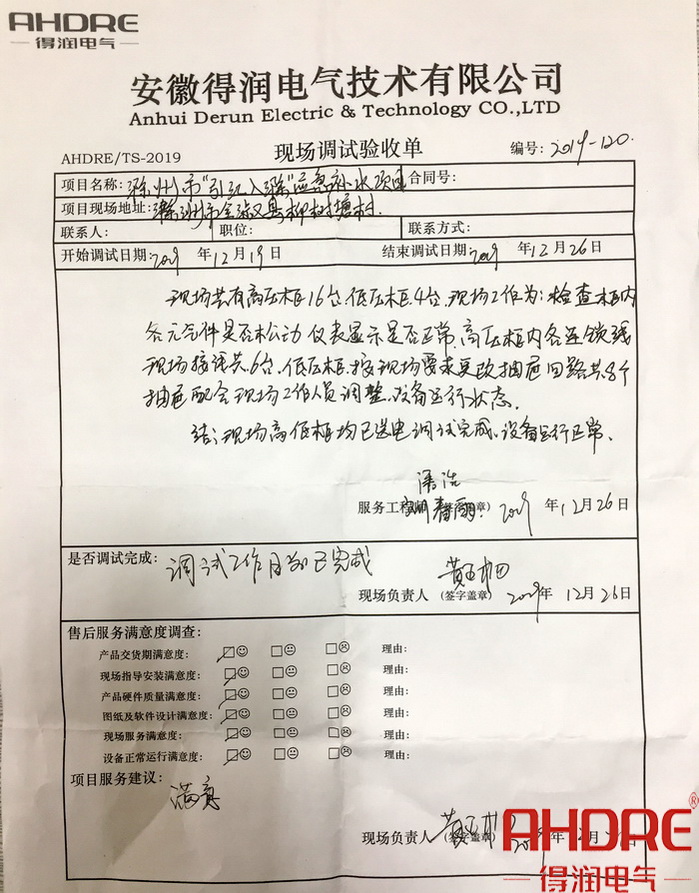 AHDRE
得润电气
安徽得润电气技术有限公司
Anhui Derun Electric & Technology CO.,LTD
AHDRE/TS-2019 现场调试验收单 编号: 2019-120
项目名称: 滁州市"引江入滁"应急补水项目 合同号:
项目现场地址: 滁州市全椒县柳树塘村.
联系人: 职位: 联系方式:
开始调试日期: 2019 年 12 月 19 日 结束调试日期: 2019 年 12 月 26 日
现场共有高压柜16台,低压柜4台,现场工作为:检查柜内
各元气件是否松动,仪表显示是否正常,高压柜内各连锁线
现场接线共6台,低压柜按现场要求更改抽屉回路共8个
抽屉,配合现场工作人员调整设备运行状态.
结:现场高低柜均已送电调试完成,设备运行正常.
服务工程师 (签字盖章) 2019 年 12 月 26 日
是否调试完成: 调试工作目前已完成
现场负责人 (签字盖章) 2019 年 12 月 26 日
售后服务满意度调查:
产品交货期满意度: 理由:
现场指导安装满意度: 理由:
产品硬件质量满意度: 理由:
图纸及软件设计满意度: 理由:
现场服务满意度: 理由:
设备正常运行满意度: 理由:
项目服务建议:
满意
现场负责人 (签字盖章) 年 月 日
AHDRE®
得润电气